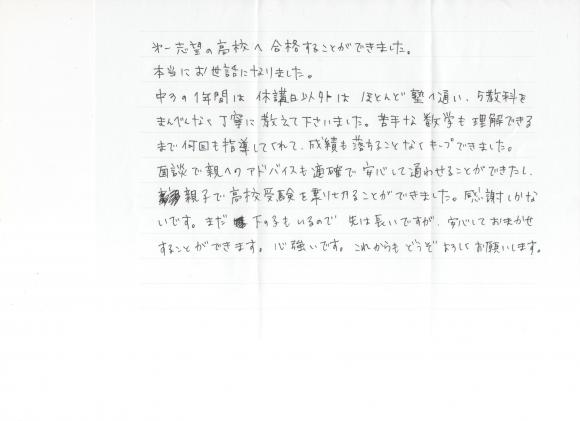 第一志望の高校へ合格することができました。
本当にお世話になりました。
中3の1年間は休講日以外はほとんど塾へ通い、5教科を
まんべんなく丁寧に教えて下さいました。苦手な数学も理解できる
まで何回も指導してくれて、成績も落すことなくキープできました。
面談で親へのアドバイスも適確で安心して通わせることができたし、
親子で高校受験を乗り切ることができました。感謝しかな
いです。まだ下の子もいるので先は長いですが、安心しておまかせ
することができます。心強いです。これからもどうぞよろしくお願いします。